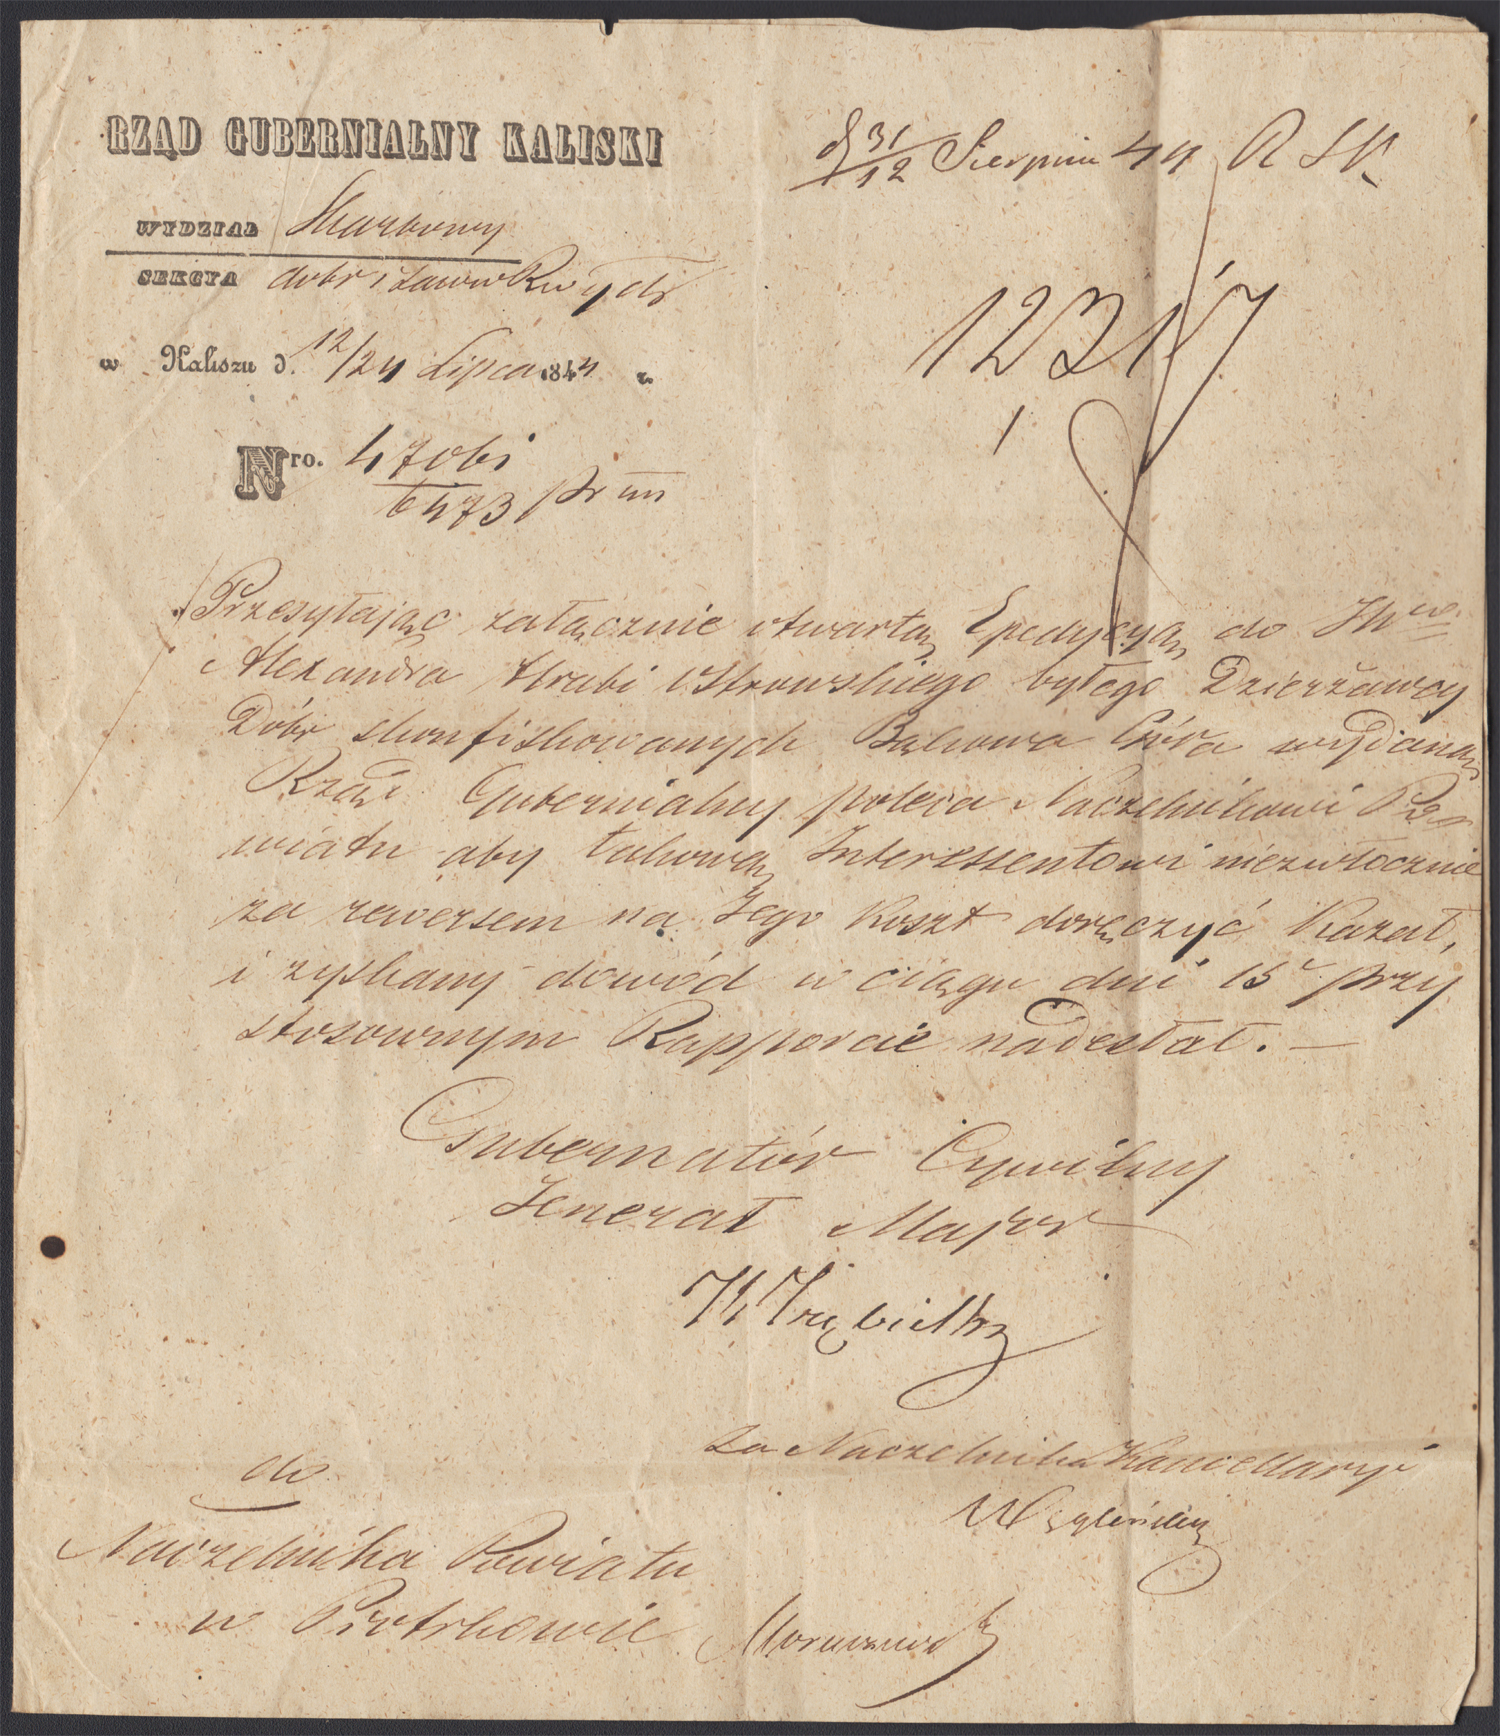 RZĄD GUBERNIALNY KALISKI
d 31/12 Sierpnia 44 R
WYDZIAŁ Skarbowy
SEKCYA dobr i Lasow Rządch
w Kaliszu d. 12/24 Lipca 1844 r.
12317
Nro. 47061
6473
Przesyłając załącznie otwartą Expedycyą do JW
Alexandra Hrabi Ostrowskiego byłego Dzierżawcy
Dóbr skonfiskowanych Bąkowa Góra wydaną
Rząd Gubernialny poleca Naczelnikowi Po
wiatu aby takową Interessentowi niezwłocznie
za rewersem na Jego koszt doręczyć kazał,
i zyskany dowód w ciągu dni 15 przy
stosownym Rapporcie nadesłał. —
Gubernator Cywilny
Jenerał Major
za Naczelnika Kancellaryi
do
Naczelnika Powiatu
w Piotrkowie